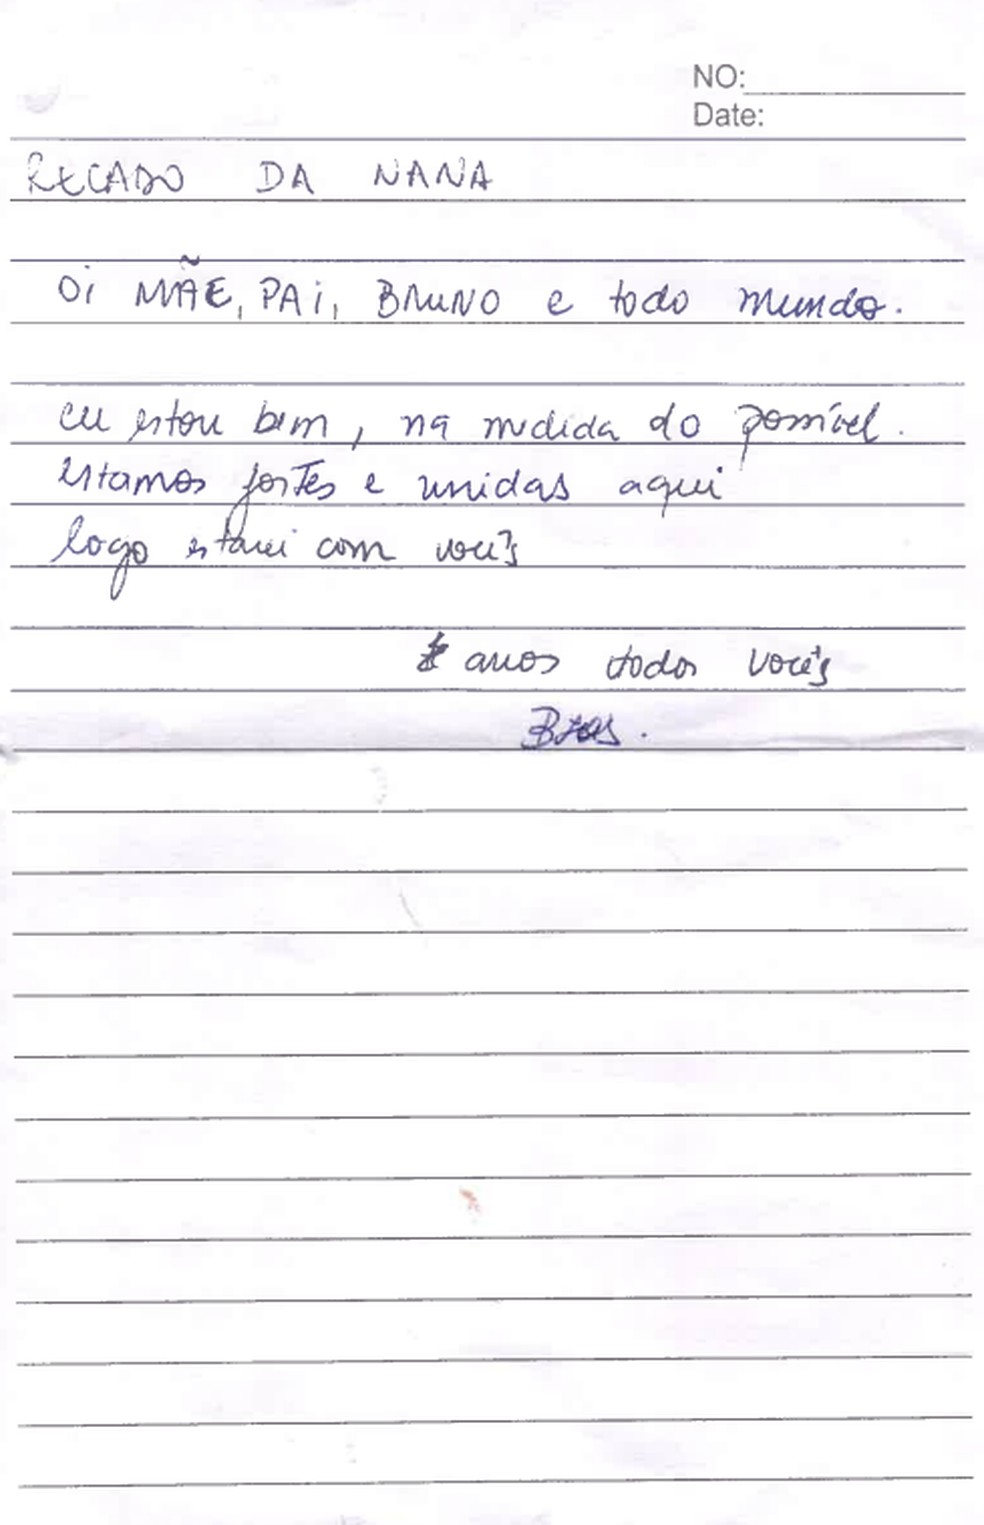 NO:
Date:
RECADO DA NANA
Oi MÃE, PAi, BRUNO e todo mundo.
eu estou bem, na medida do possível.
estamos fortes e unidas aqui
logo estarei com vocês
amos todos vocês
Bjos.